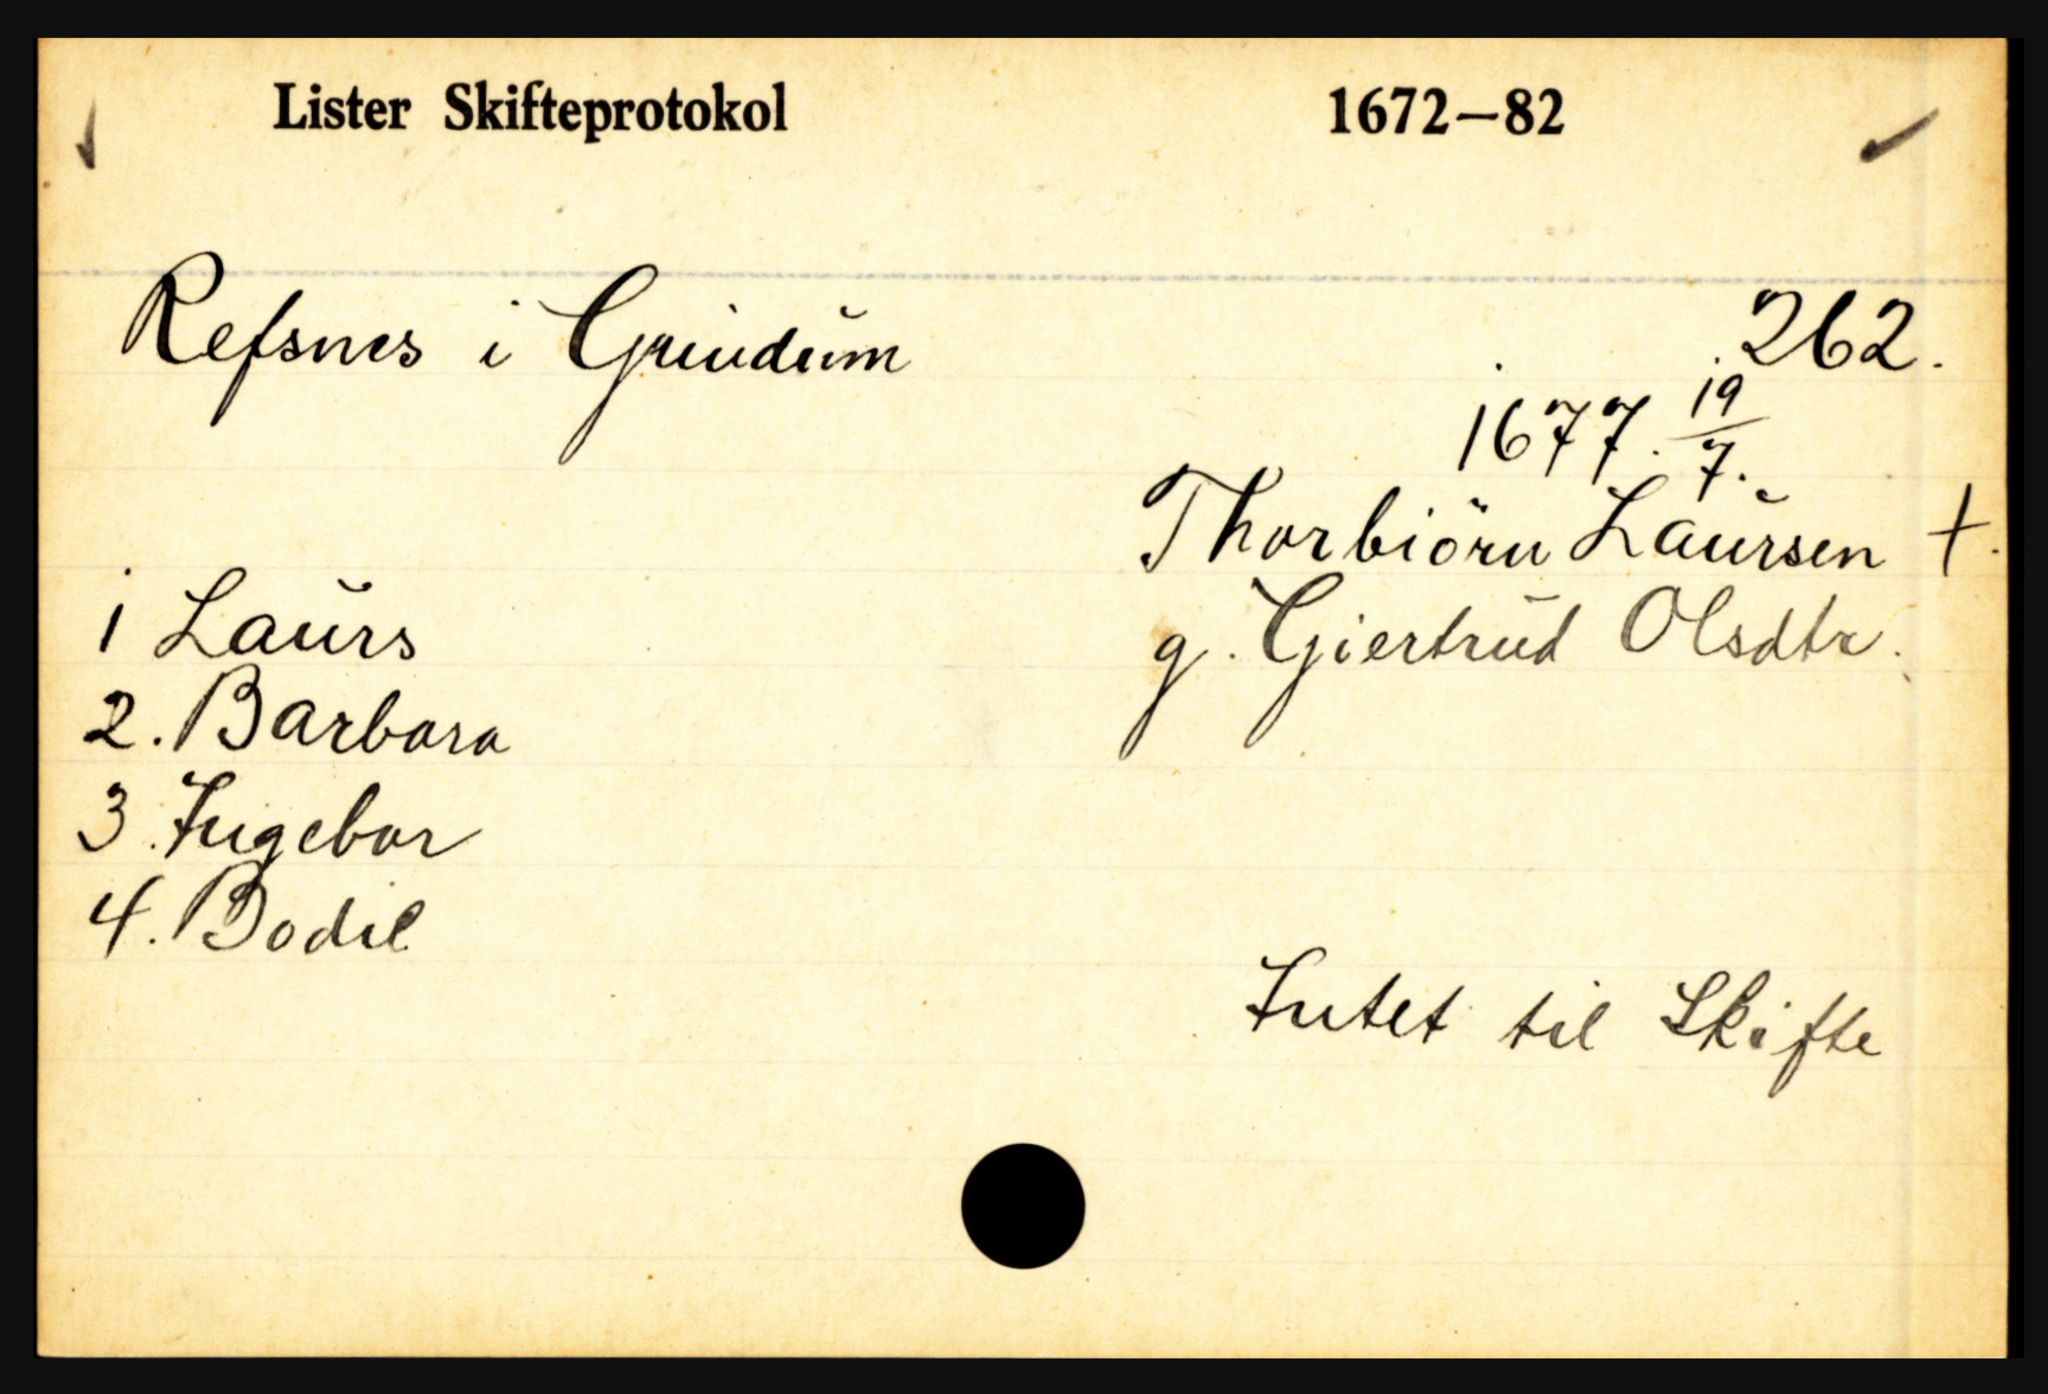 Lister Skifteprotokol 1672–82
Refsnes i Grindum 262.
1677. 19/7.
Thorbiörn Laursen †.
g. Giertrud Olsdtr.
1 Laurs
2. Barbara
3. Ingebor
4. Bodil
Intet til Skifte